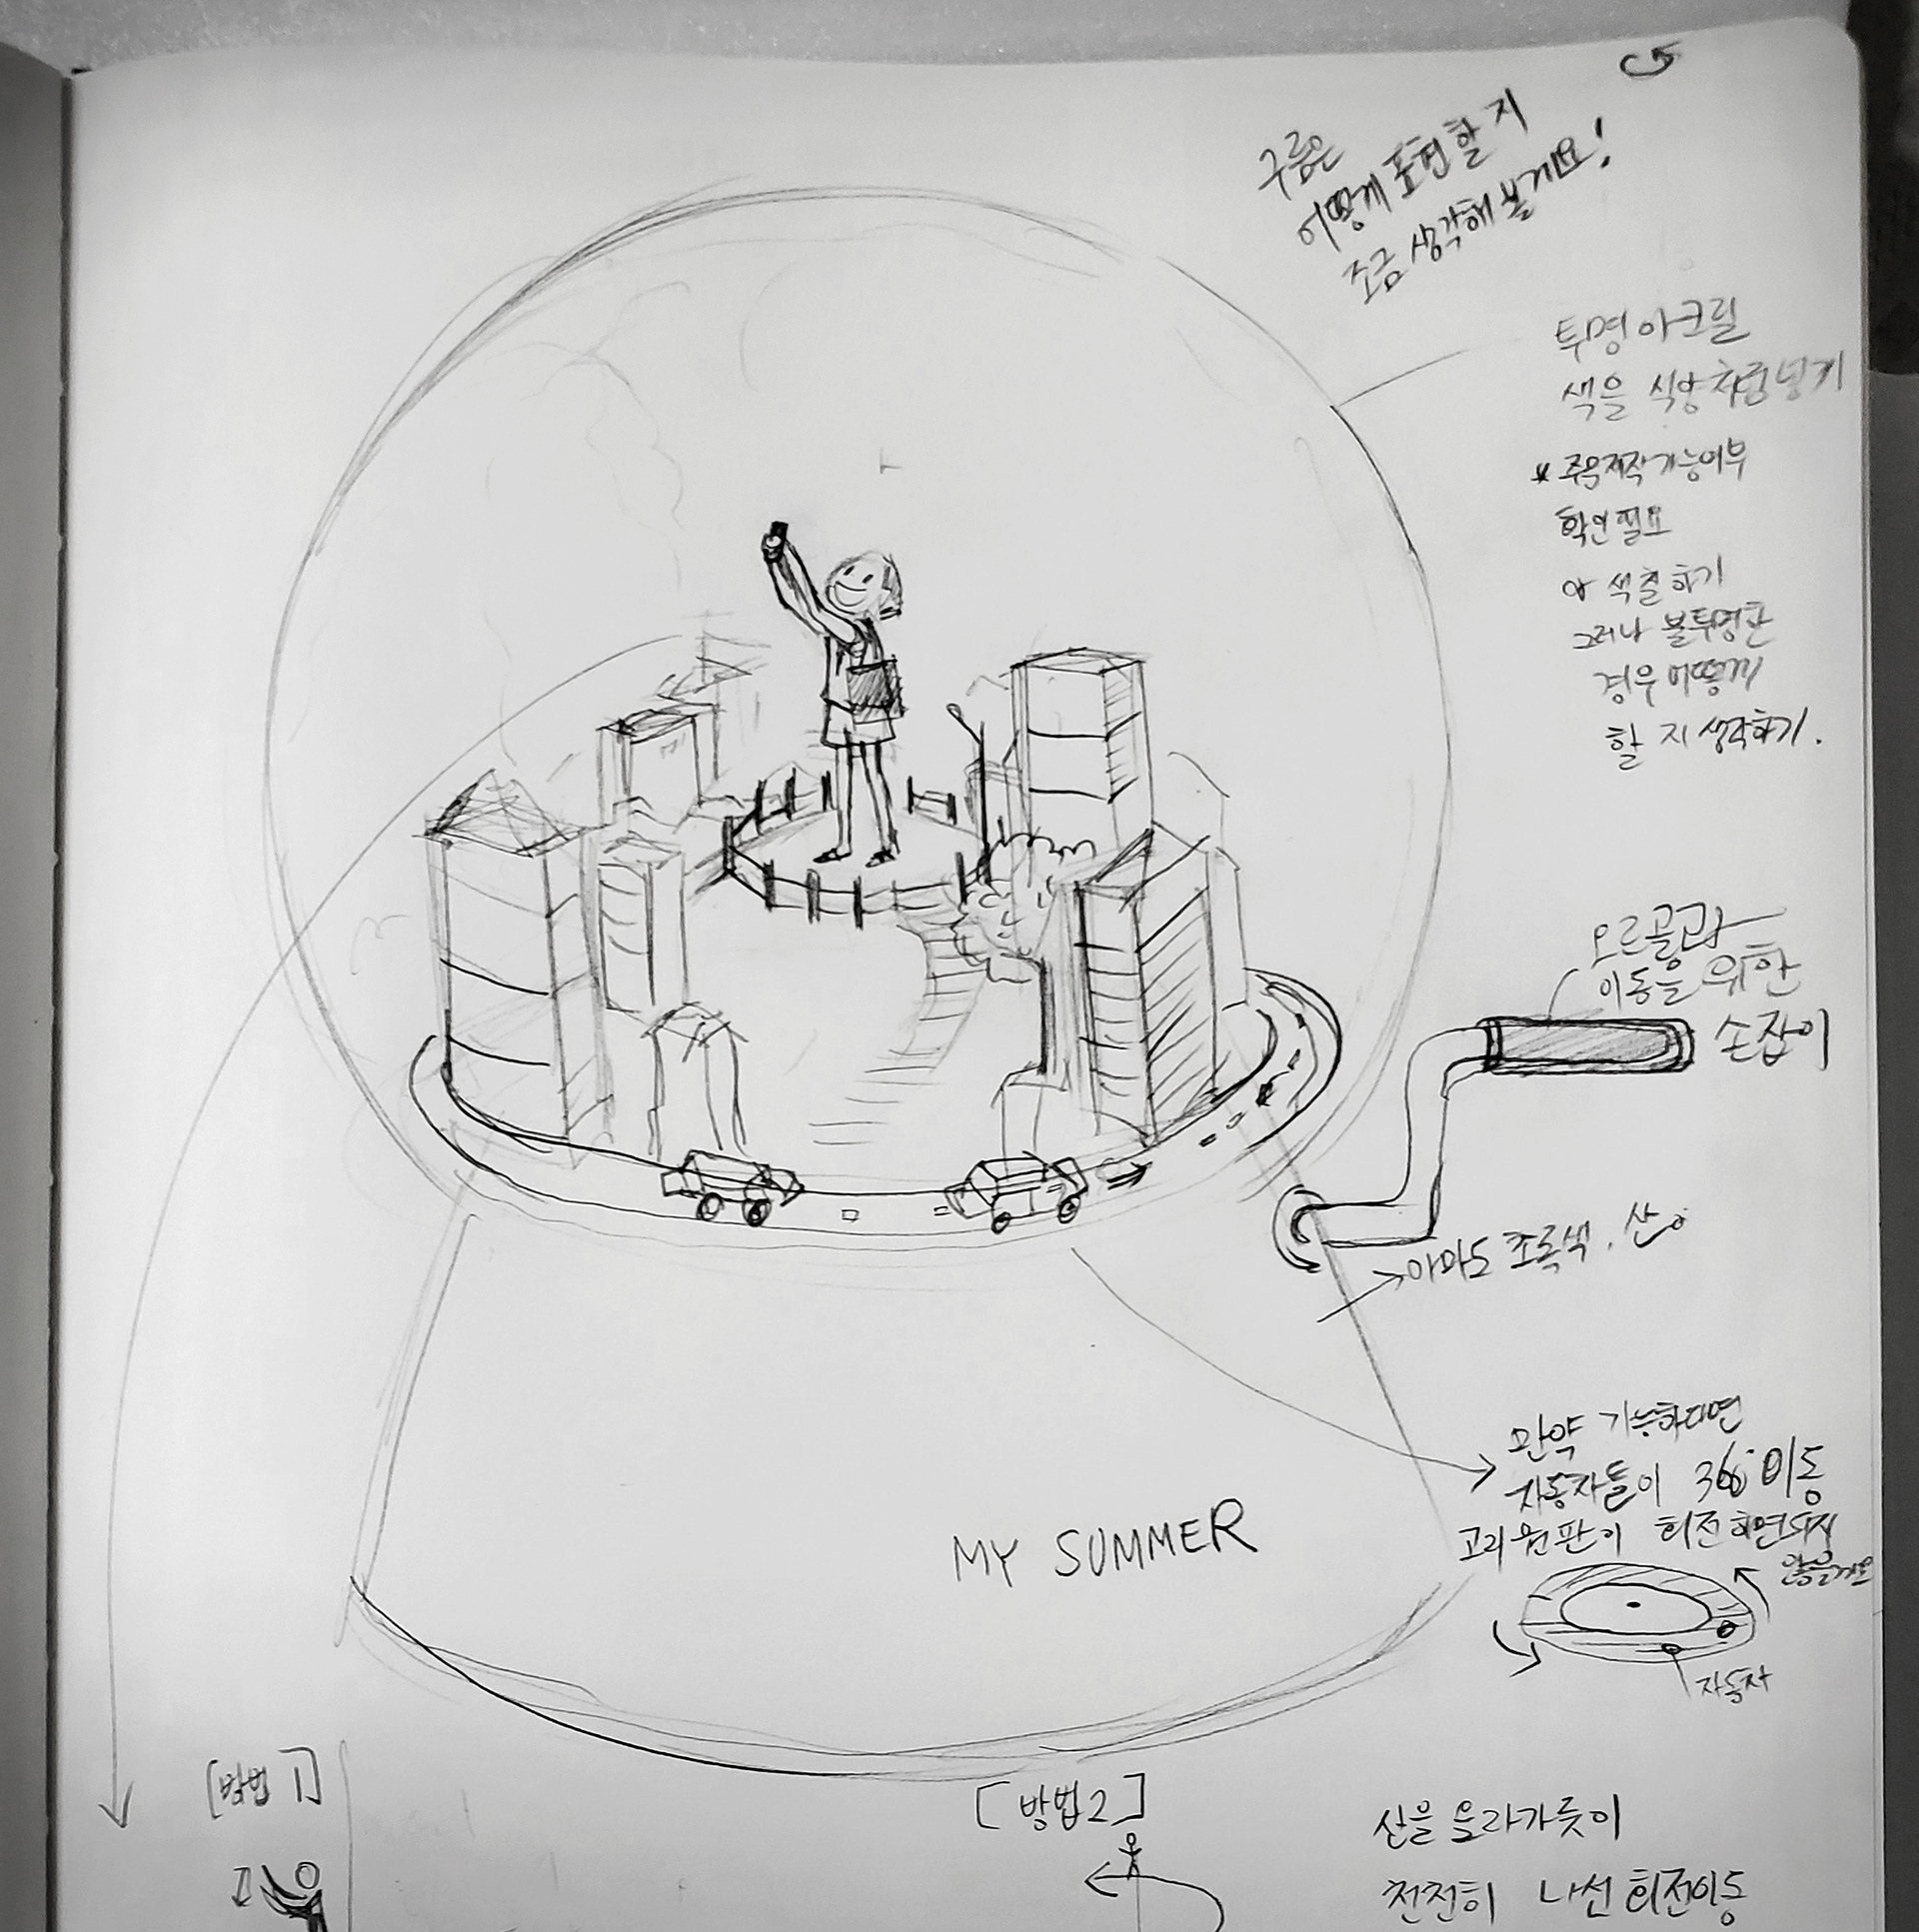 구름은
어떻게 표현할지
조금 생각해볼게요!
투명아크릴
색을 석양처럼 넣기
* 주문제작가능여부
확인필요
색칠하기
그러나 불투명한
경우 어떻게
할 지 생각하기.
오르골과
이동을 위한
손잡이
아마도 초록색. 산
만약 가능하다면
자동차들이 360° 이동
고리원판이 회전하면되지
않을까요
자동차
MY SUMMER
[방법 1]
[방법2]
산을 올라가듯이
천천히 나선 회전이동